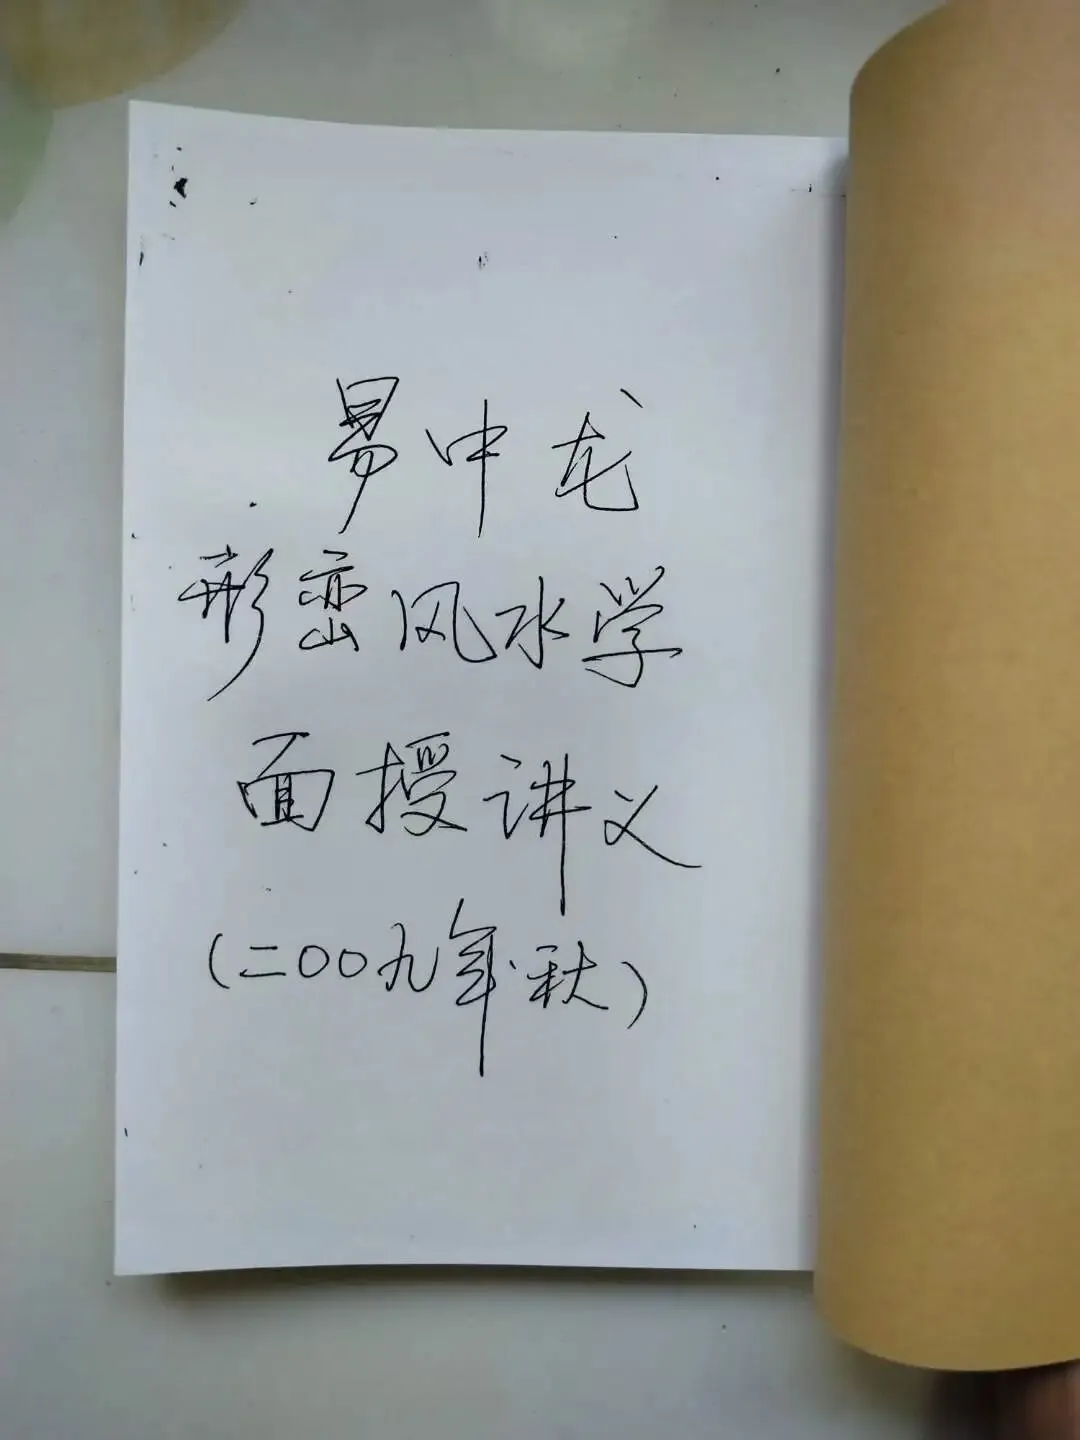 易中龙
形峦风水学
面授讲义
(二〇〇九年.秋)